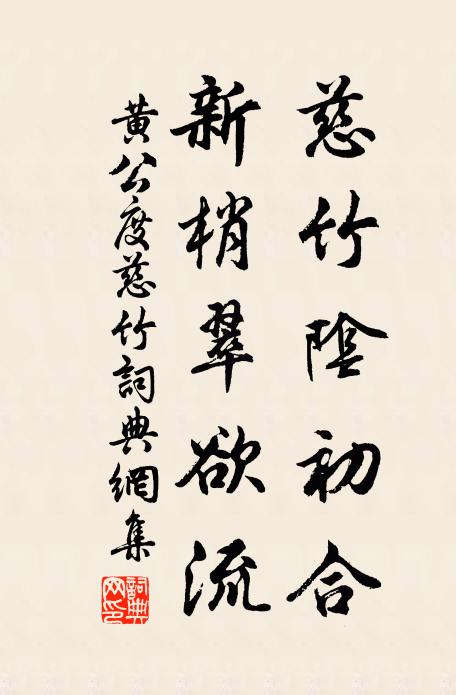 慈竹陰初合
新梢翠欲流
黃公度慈竹詞典網集
詞典網印